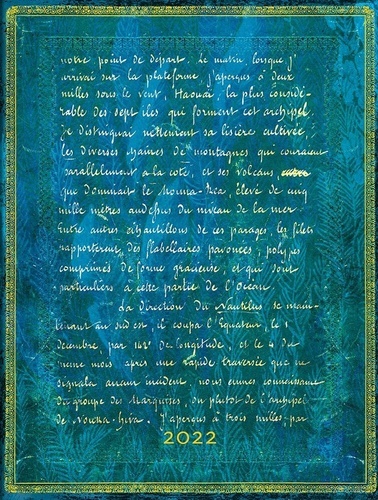 notre point de départ. Le matin, lorsque j'
arrivai sur la plateforme, j'aperçus à deux
milles sous le vent, Haouaï, la plus considé-
rable des sept îles qui forment cet archipel.
Je distinguai nettement sa lisière cultivée,
les diverses chaînes de montagnes qui couraient
parallèlement à la côte, et ses volcans,
que dominait le Mouna-Rea, élevé de cinq
mille mètres au dessus du niveau de la mer.
Entre autres échantillons de ces parages, les filets
rapportèrent des flabellaires pavonées, polypes
comprimés de forme gracieuse, et qui sont
particuliers à cette partie de l'Océan.
La direction du Nautilus se main-
tenait au sud est. Il coupa l'Equateur, le 1
décembre, par 142° de longitude, et le 4 du
même mois, après une rapide traversée que ne
signala aucun incident, nous eûmes connaissance
du groupe des Marquises, ou plutôt de l'archipel
de Nouka-hiva. J'aperçus à trois milles, par
2022